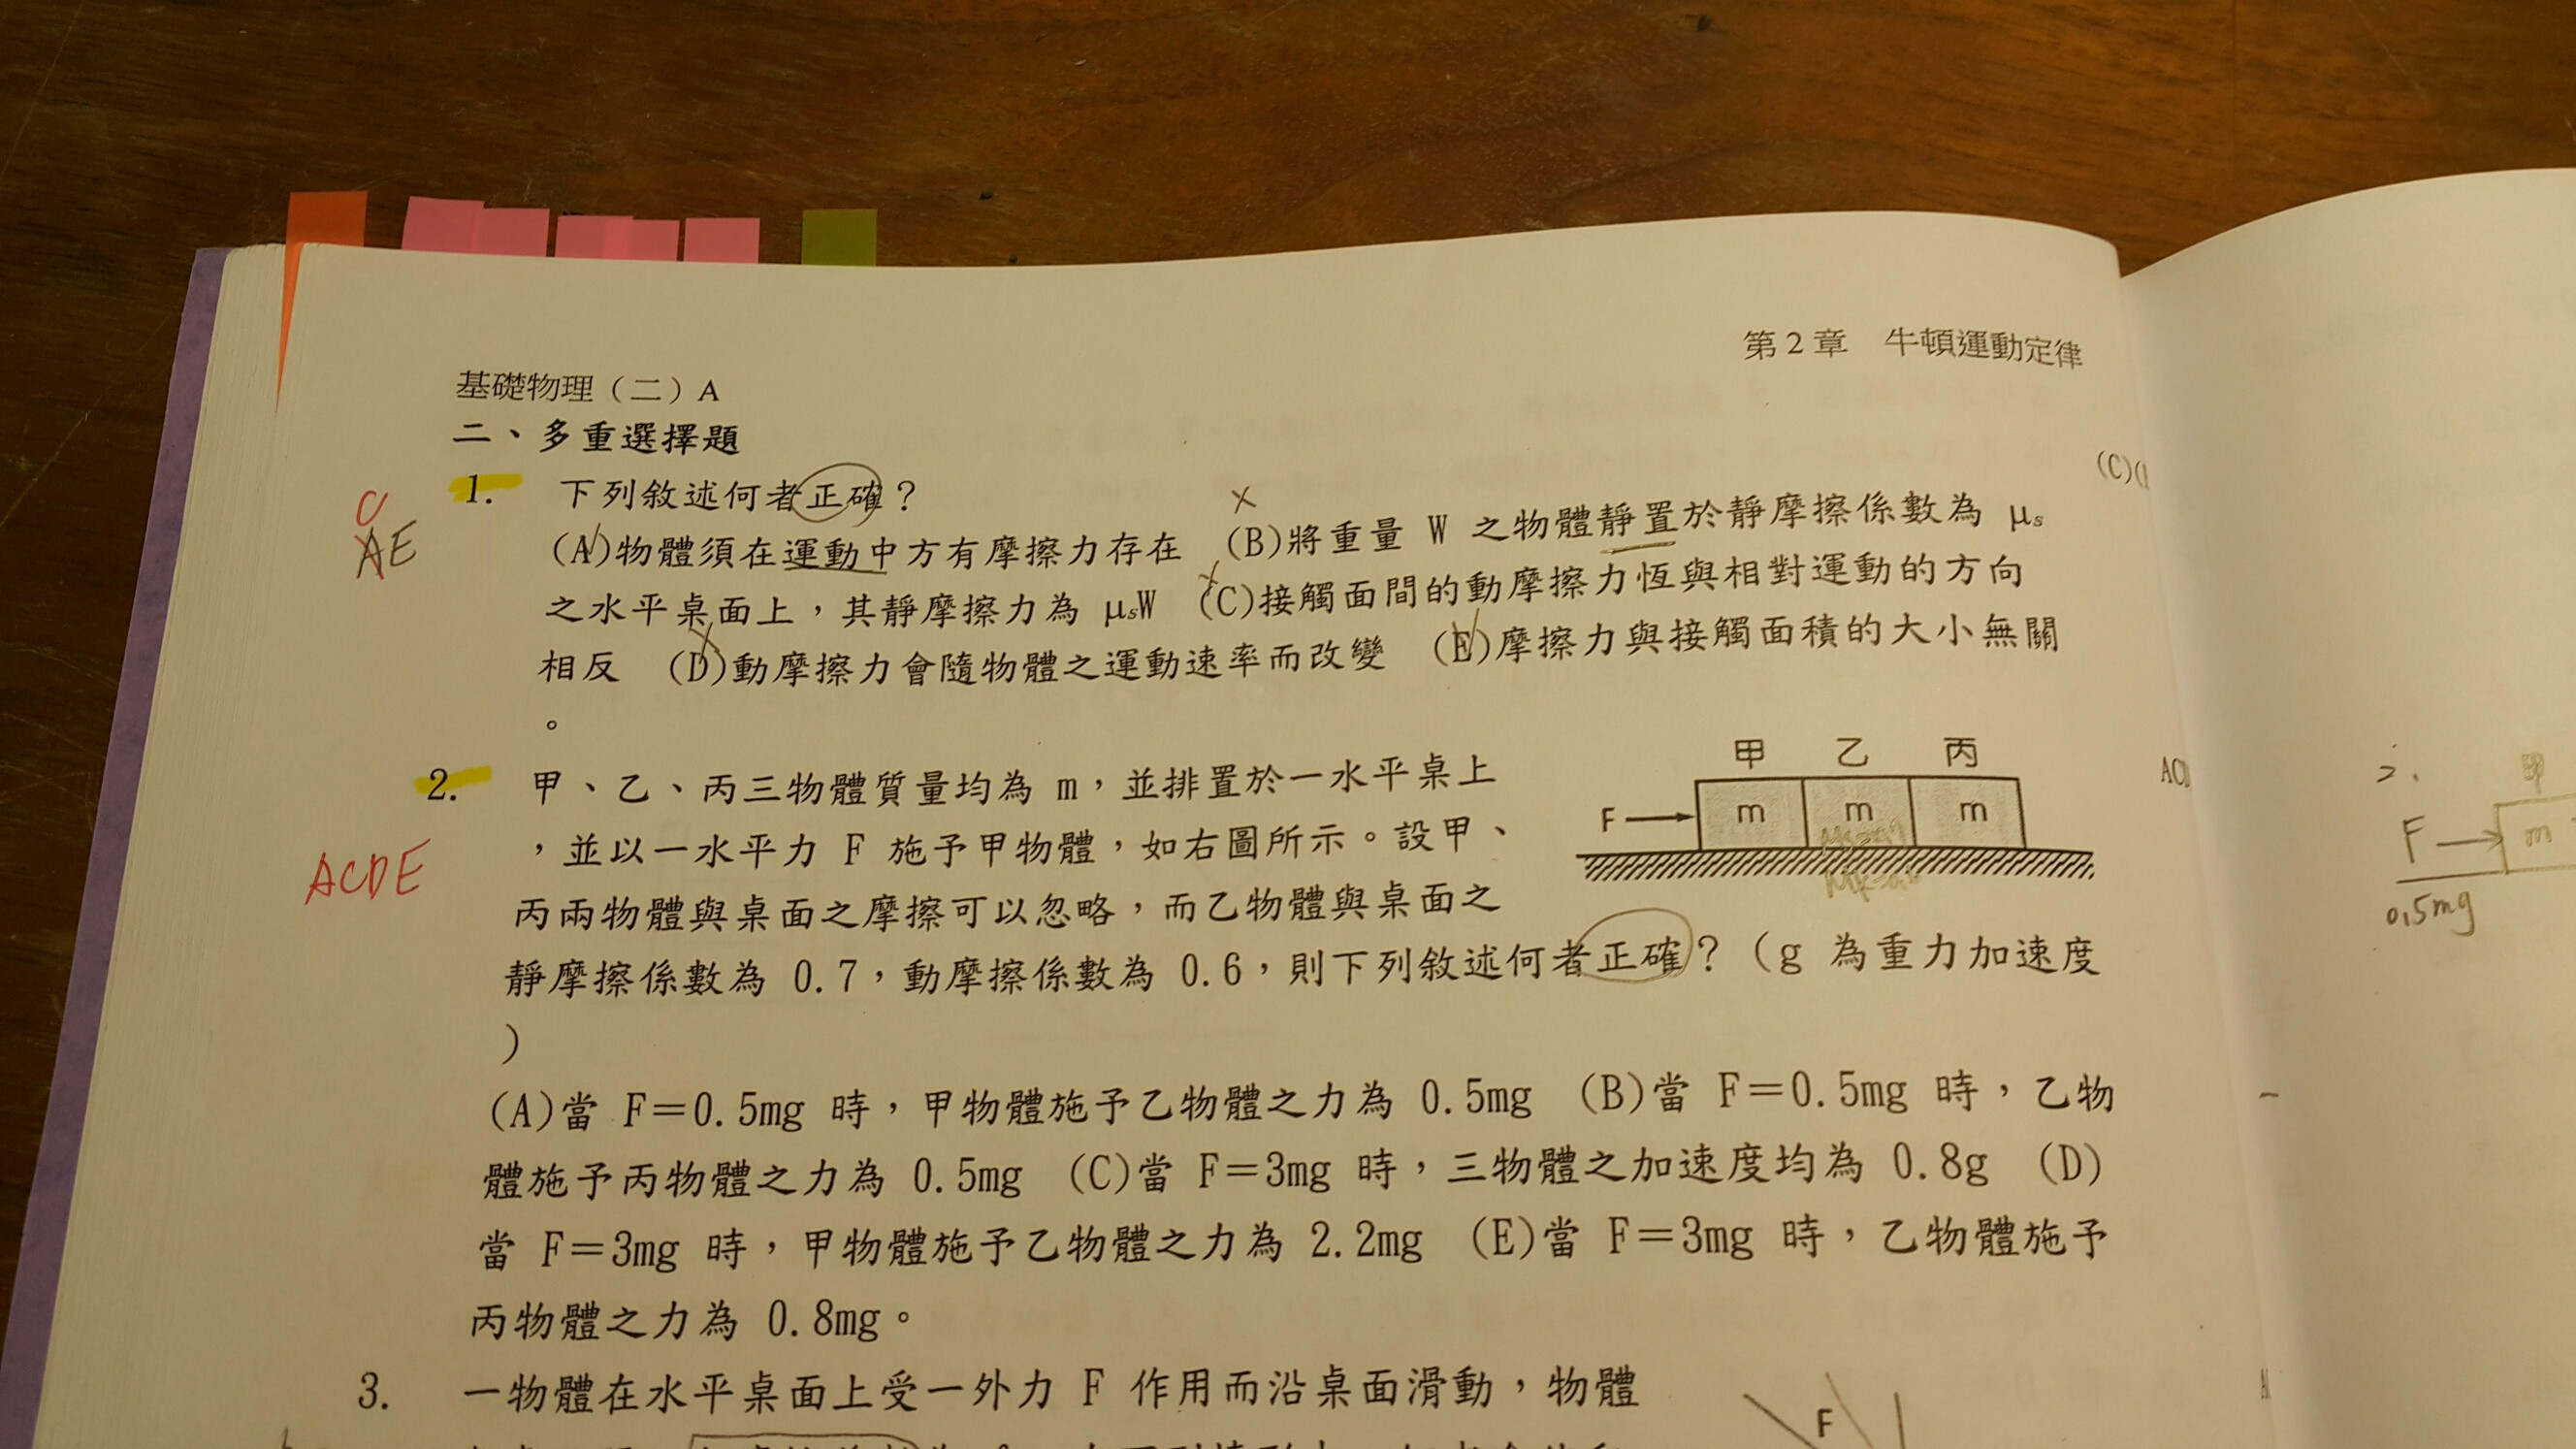 第2章 牛頓運動定律
基礎物理(二)A
二、多重選擇題
(C)(
1. 下列敘述何者正確?
C
AE
(A)物體須在運動中方有摩擦力存在 (B)將重量 W 之物體靜置於靜摩擦係數為 μs
之水平桌面上,其靜摩擦力為 μsW (C)接觸面間的動摩擦力恆與相對運動的方向
相反 (D)動摩擦力會隨物體之運動速率而改變 (E)摩擦力與接觸面積的大小無關
。
甲 乙 丙
F m m m
2. 甲、乙、丙三物體質量均為 m,並排置於一水平桌上
,並以一水平力 F 施予甲物體,如右圖所示。設甲、
ACDE
丙兩物體與桌面之摩擦可以忽略,而乙物體與桌面之
靜摩擦係數為 0.7,動摩擦係數為 0.6,則下列敘述何者正確?(g 為重力加速度
)
(A)當 F=0.5mg 時,甲物體施予乙物體之力為 0.5mg (B)當 F=0.5mg 時,乙物
體施予丙物體之力為 0.5mg (C)當 F=3mg 時,三物體之加速度均為 0.8g (D)
當 F=3mg 時,甲物體施予乙物體之力為 2.2mg (E)當 F=3mg 時,乙物體施予
丙物體之力為 0.8mg。
3. 一物體在水平桌面上受一外力 F 作用而沿桌面滑動,物體
F
ACD
2.
甲
F m
0.5mg